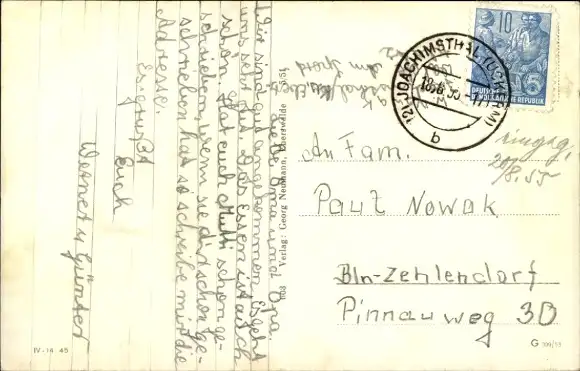 Liebe Oma und Opa.
Wir sind gut angekommen. Es geht
uns sehr gut. Das Essen ist auch
schön. Hat euch Mutti schon ge-
schrieben, wenn sie dir schon ge-
schrieben hat so schreibe mir die
Adresse.
Es grüßt
Euch
Werner u Günter
1103 Verlag: Georg Neumann, Eberswalde
(2) JOACHIMSTHAL (UCKERM)
18.8.55
b
10
DEUTSCHE
DEMOKRATISCHE REPUBLIK
5
eingeg.
20/8.55
An Fam.
Paul Nowak
Bln-Zehlendorf
Pinnauweg 3D
IV-14-45
G